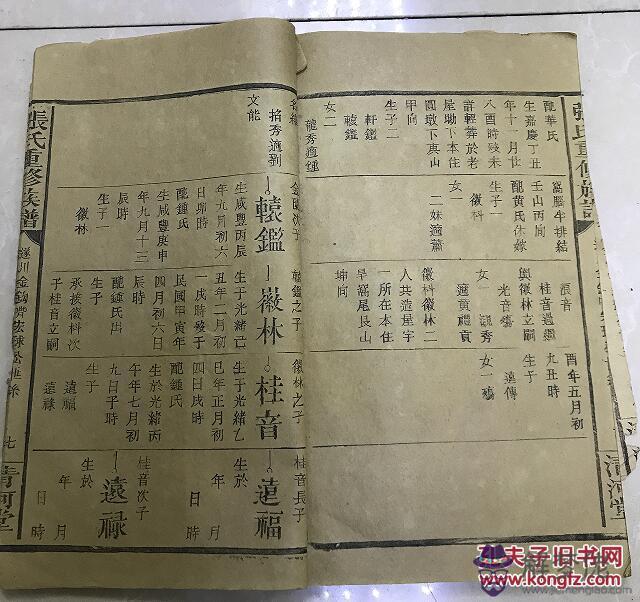 配華氏
生嘉慶丁丑
年十一月廿
八酉時歿未
詳輕葬於老
屋坳下本住
圓墩下艮山
甲向
生子二
軒鑑
轅鑑
女二
龍秀適鍾
名
招秀適劉
文能
壬山丙向
配黃氏休嫁
生子一
徽科
女一
二妹適蕭
桂音過繼
與徽林立嗣
光音
女一
觀秀
適黃禮貢
徽科徽林二
人共造星字
一所在本住
早窩尾艮山
坤向
酉年五月初
九丑時
生子
遠傳
女一
次子
轅鑑
生咸豐丙辰
年九月初六
日卯時
配鍾氏
生咸豐庚申
年九月十三
辰時
生子一
徽林
轅鑑之子
徽林
生于光緒己
丑年二月初
一戌時歿于
民國甲寅年
四月初六日
辰時
配鍾氏出
生子
承接徽科次
子桂音立嗣
徽林之子
桂音
生于光緒乙
巳年正月初
四日戌時
配鍾氏
生於光緒丙
午年七月初
九日子時
生子
遠福
遠祿
桂音長子
遠福
生於
年 月
日 時
桂音次子
遠祿
生於
年 月
日 時
張氏重修族譜
遂川金
七
清河堂
清河堂
夫子旧书网
www.kongfz.com